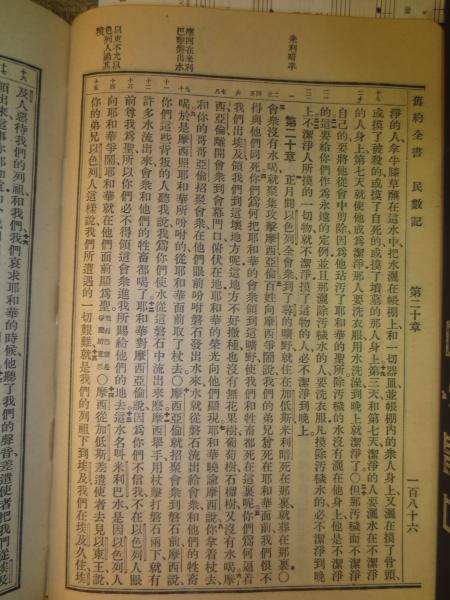 舊約全書 民數記 第二十章 一百八十六
米利暗卒
摩西在米利巴擊磐出水
以東不允以色列人過其境
淨的人拿牛膝草蘸在這水中把水灑在帳棚上和一切器皿並帳棚內的衆人身上又灑在摸了骨頭、
或摸了被殺的或摸了自死的或摸了墳墓的那人身上第三天和第七天潔淨的人要灑水在不潔淨
的人身上第七天就使他成爲潔淨那人要洗衣服用水洗澡到晚上就潔淨了○但那汚穢而不潔淨
自己的要將他從會中剪除因爲他玷汚了耶和華的聖所除汚穢的水沒有灑在他身上他是不潔淨
的這要給你們作爲永遠的定例並且那灑除汚穢水的人要洗衣服凡摸除汚穢水的必不潔淨到晚
上不潔淨人所摸的一切物就不潔淨摸了這物的人必不潔淨到晚上
第二十章 正月間以色列全會衆到了尋的曠野就住在加低斯米利暗死在那裏就葬在那裏○
會衆沒有水喝就聚集攻擊摩西亞倫百姓向摩西爭鬧說我們的弟兄曾死在耶和華面前我們恨不
得與他們同死你們爲何把耶和華的會衆領到這曠野使我們和牲畜都死在這裏呢你們爲何逼着
我們出埃及領我們到這壞地方呢這地方不好撒種也沒有無花果樹葡萄樹石榴樹又沒有水喝摩
西亞倫離開會衆到會幕門口俯伏在地耶和華的榮光向他們顯現耶和華曉諭摩西說你拿着杖去
和你的哥哥亞倫招聚會衆在他們眼前吩咐磐石發出水來水就從磐石流出給會衆和他們的牲畜
喝於是摩西照耶和華所吩咐的從耶和華面前取了杖去○摩西亞倫就招聚會衆到磐石前摩西說
你們這些背叛的人聽我說我爲你們使水從這磐石中流出來麽摩西舉手用杖擊打磐石兩下就有
許多水流出來會衆和他們的牲畜都喝了耶和華對摩西亞倫說因爲你們不信我不在以色列人眼
前尊我爲聖所以你們必不得領這會衆進我所賜給他們的地去這水名叫米利巴水是因以色列人
向耶和華爭鬧耶和華就在他們面前顯爲聖○摩西從加低斯差遣使者去見以東王說
你的弟兄以色列人這樣說我們所遭遇的一切艱難就是我們的列祖下到埃及我們在埃及久住埃
及人惡待我們的列祖和我們我們哀求耶和華的時候他聽了我們的聲音差遣使者把我們從埃及